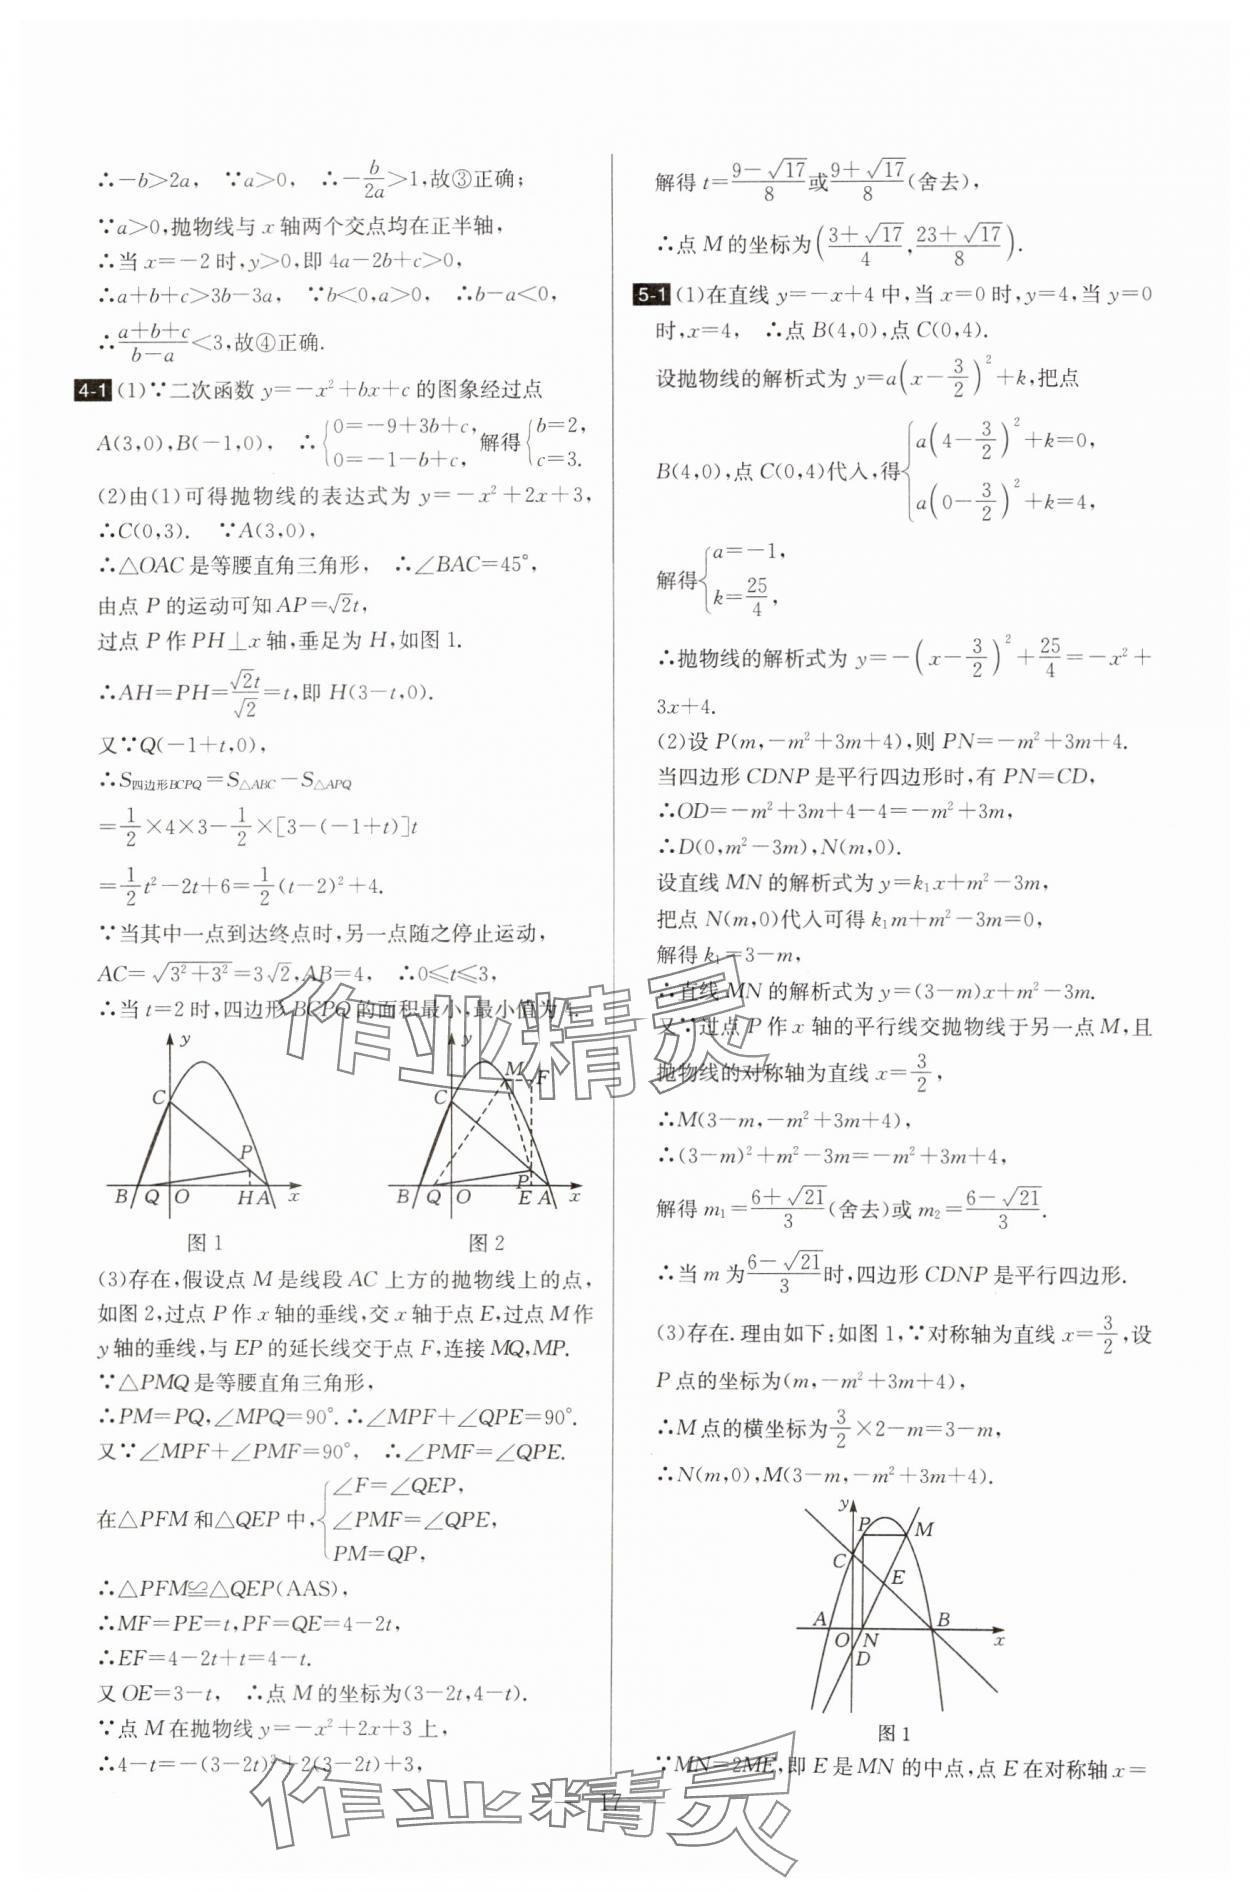 ∴－b＞2a， ∵a＞0， ∴－b/2a＞1,故③正确；
∵a＞0,抛物线与 x 轴两个交点均在正半轴，
∴当 x＝－2 时,y＞0,即 4a－2b＋c＞0，
∴a＋b＋c＞3b－3a， ∵b＜0,a＞0， ∴b－a＜0，
∴(a＋b＋c)/(b－a)＜3,故④正确.
4-1 (1)∵二次函数 y＝－x²＋bx＋c 的图象经过点
A(3,0),B(－1,0)， ∴{0＝－9＋3b＋c, 0＝－1－b＋c, 解得{b＝2, c＝3.
(2)由(1)可得抛物线的表达式为 y＝－x²＋2x＋3，
∴C(0,3). ∵A(3,0)，
∴△OAC 是等腰直角三角形， ∴∠BAC＝45°，
由点 P 的运动可知 AP＝√2t，
过点 P 作 PH⊥x 轴,垂足为 H,如图 1.
∴AH＝PH＝√2t/√2＝t,即 H(3－t,0).
又∵Q(－1＋t,0)，
∴S四边形BCPQ＝S△ABC－S△APQ
＝1/2×4×3－1/2×[3－(－1＋t)]t
＝1/2t²－2t＋6＝1/2(t－2)²＋4.
∵当其中一点到达终点时,另一点随之停止运动，
AC＝√(3²＋3²)＝3√2,AB＝4， ∴0≤t≤3，
∴当 t＝2 时,四边形 BCPQ 的面积最小,最小值为 4.
y C P B Q O H A x
图 1
y M F C P B Q O E A x
图 2
(3)存在,假设点 M 是线段 AC 上方的抛物线上的点，
如图 2,过点 P 作 x 轴的垂线,交 x 轴于点 E,过点 M 作
y 轴的垂线,与 EP 的延长线交于点 F,连接 MQ,MP.
∵△PMQ 是等腰直角三角形，
∴PM＝PQ,∠MPQ＝90°.∴∠MPF＋∠QPE＝90°.
又∵∠MPF＋∠PMF＝90°， ∴∠PMF＝∠QPE.
在△PFM 和△QEP 中,{∠F＝∠QEP, ∠PMF＝∠QPE, PM＝QP,
∴△PFM≌△QEP(AAS)，
∴MF＝PE＝t,PF＝QE＝4－2t，
∴EF＝4－2t＋t＝4－t.
又 OE＝3－t， ∴点 M 的坐标为(3－2t,4－t).
∵点 M 在抛物线 y＝－x²＋2x＋3 上，
∴4－t＝－(3－2t)²＋2(3－2t)＋3，
解得 t＝(9－√17)/8或(9＋√17)/8(舍去)，
∴点 M 的坐标为((3＋√17)/4,(23＋√17)/8).
5-1 (1)在直线 y＝－x＋4 中,当 x＝0 时,y＝4,当 y＝0
时,x＝4， ∴点 B(4,0),点 C(0,4).
设抛物线的解析式为 y＝a(x－3/2)²＋k,把点
B(4,0),点 C(0,4)代入,得{a(4－3/2)²＋k＝0, a(0－3/2)²＋k＝4,
解得{a＝－1, k＝25/4,
∴抛物线的解析式为 y＝－(x－3/2)²＋25/4＝－x²＋
3x＋4.
(2)设 P(m,－m²＋3m＋4),则 PN＝－m²＋3m＋4.
当四边形 CDNP 是平行四边形时,有 PN＝CD，
∴OD＝－m²＋3m＋4－4＝－m²＋3m，
∴D(0,m²－3m),N(m,0).
设直线 MN 的解析式为 y＝k₁x＋m²－3m，
把点 N(m,0)代入可得 k₁m＋m²－3m＝0，
解得 k₁＝3－m，
∴直线 MN 的解析式为 y＝(3－m)x＋m²－3m.
又∵过点 P 作 x 轴的平行线交抛物线于另一点 M,且
抛物线的对称轴为直线 x＝3/2，
∴M(3－m,－m²＋3m＋4)，
∴(3－m)²＋m²－3m＝－m²＋3m＋4，
解得 m₁＝(6＋√21)/3(舍去)或 m₂＝(6－√21)/3.
∴当 m 为(6－√21)/3时,四边形 CDNP 是平行四边形.
(3)存在.理由如下:如图 1,∵对称轴为直线 x＝3/2,设
P 点的坐标为(m,－m²＋3m＋4)，
∴M 点的横坐标为3/2×2－m＝3－m，
∴N(m,0),M(3－m,－m²＋3m＋4).
y P M C E A B O N x D
图 1
∵MN＝2ME,即 E 是 MN 的中点,点 E 在对称轴 x＝
17
作业精灵
作业精灵